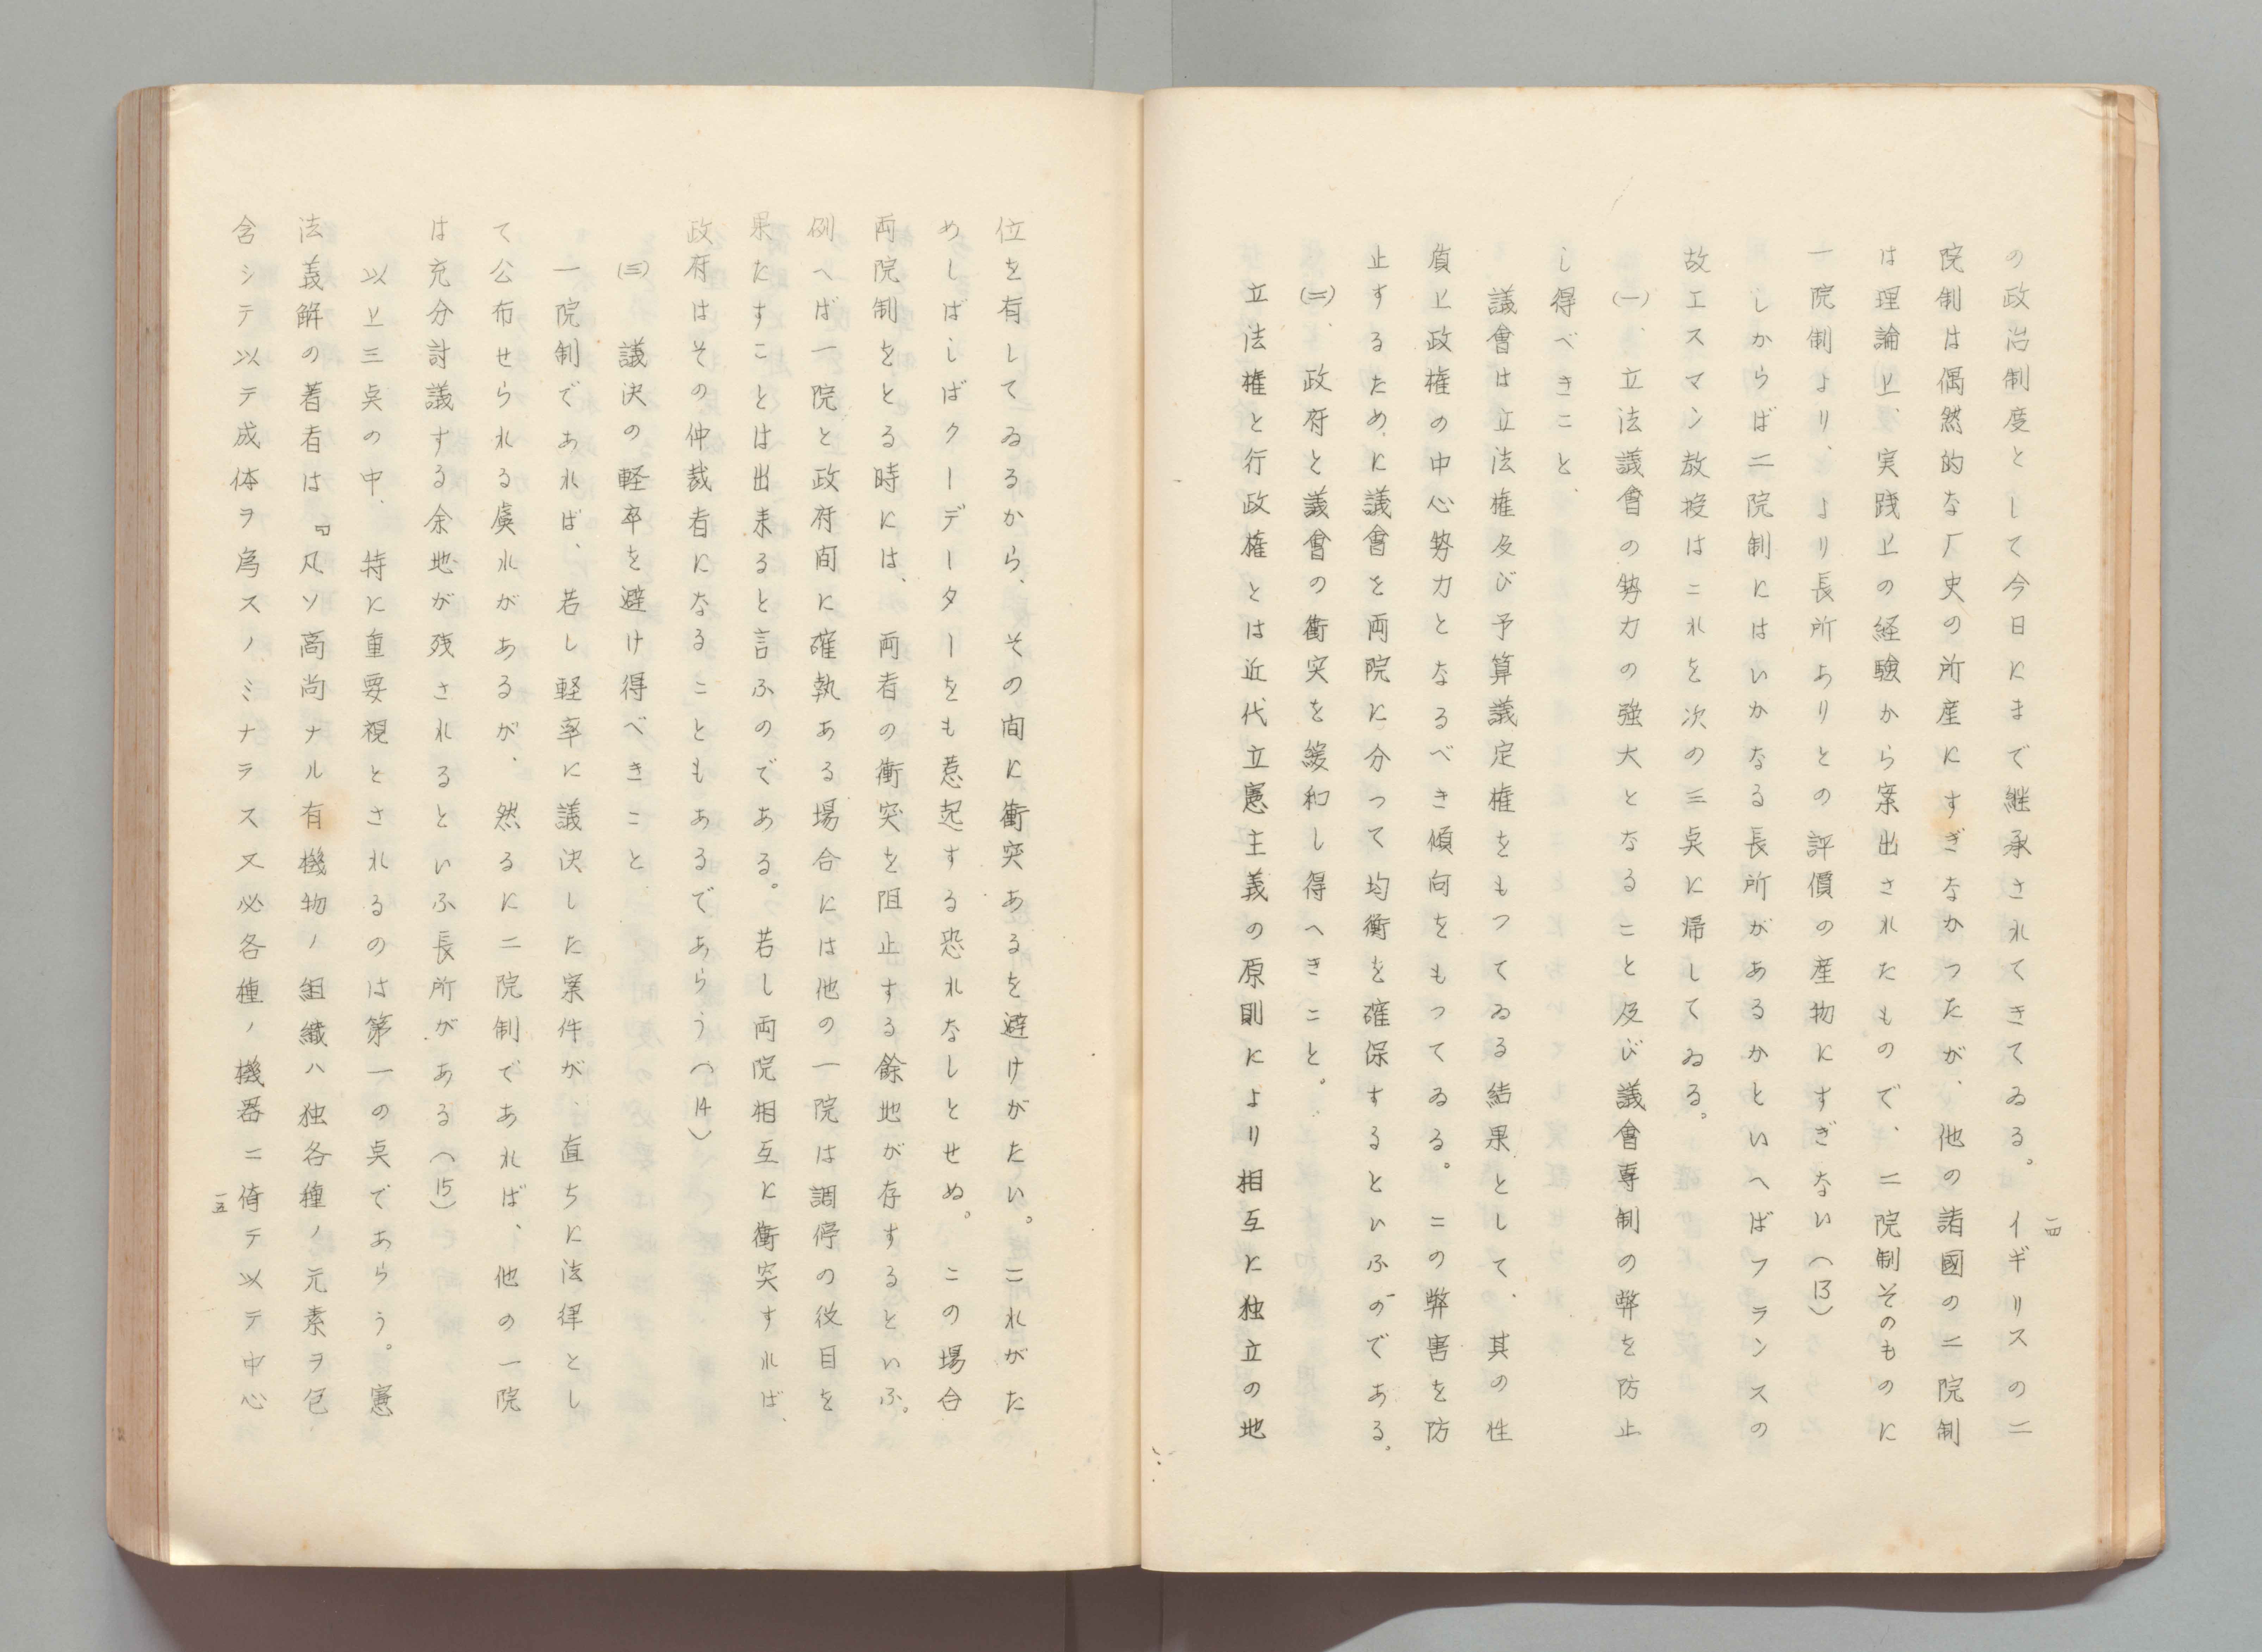 の政治制度として今日にまで継承されてきてゐる。イギリスの二
院制は偶然的な厂史の所産にすぎなかつたが、他の諸國の二院制
は理論上、実践上の経験から案出されたもので、二院制そのものに
一院制より、より長所ありとの評價の産物にすぎない(13)
しからば二院制にはいかなる長所があるかといへばフランスの
故エスマン教授はこれを次の三奌に帰してゐる。
(一)、立法議會の勢力の強大となること及び議會専制の弊を防止
し得べきこと、
議會は立法権及び予算議定権をもつてゐる結果として、其の性
質上政権の中心勢力となるべき傾向をもつてゐる。この弊害を防
止するために議會を両院に分つて均衡を確保するといふのである。
(二)、政府と議會の衝突を緩和し得へきこと。
立法権と行政権とは近代立憲主義の原則により相互に独立の地
一四
位を有してゐるから、その間に衝突あるを避けがたい。これがた
めしばしばクーデーターをも惹起する恐れなしとせぬ。この場合
両院制をとる時には、両者の衝突を阻止する餘地が存するといふ。
例へば一院と政府間に確執ある場合には他の一院は調停の役目を
果たすことは出来ると言ふのである。若し両院相互に衝突すれば、
政府はその仲裁者になることもあるであらう(14)
(三)　議決の軽卒を避け得べきこと
一院制であれば、若し軽率に議決した案件が、直ちに法律とし
て公布せられる虞れがあるが、然るに二院制であれば、他の一院
は充分討議する余地が残されるといふ長所がある(15)
以上三奌の中、特に重要視とされるのは第一の奌であらう。憲
法義解の著者は『凡ソ高尚ナル有機物ノ組織ハ独各種ノ元素ヲ包
含シテ以テ成体ヲ為スノミナラス又必各種ノ機器ニ倚テ以テ中心
一五